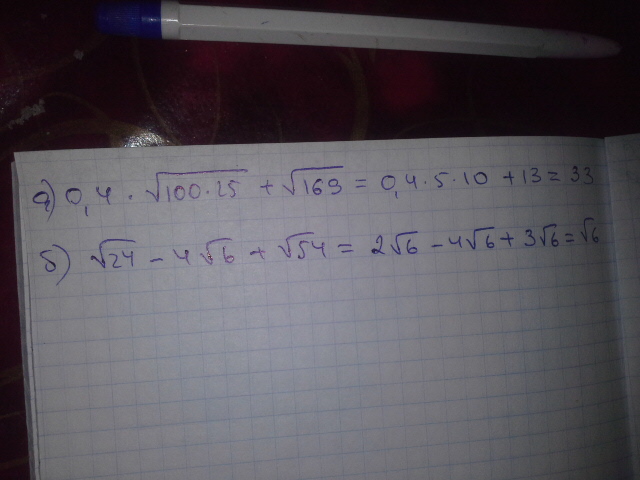 а) 0,4 · √100·25 + √169 = 0,4·5·10 + 13 = 33
б) √24 - 4√6 + √54 = 2√6 - 4√6 + 3√6 = √6